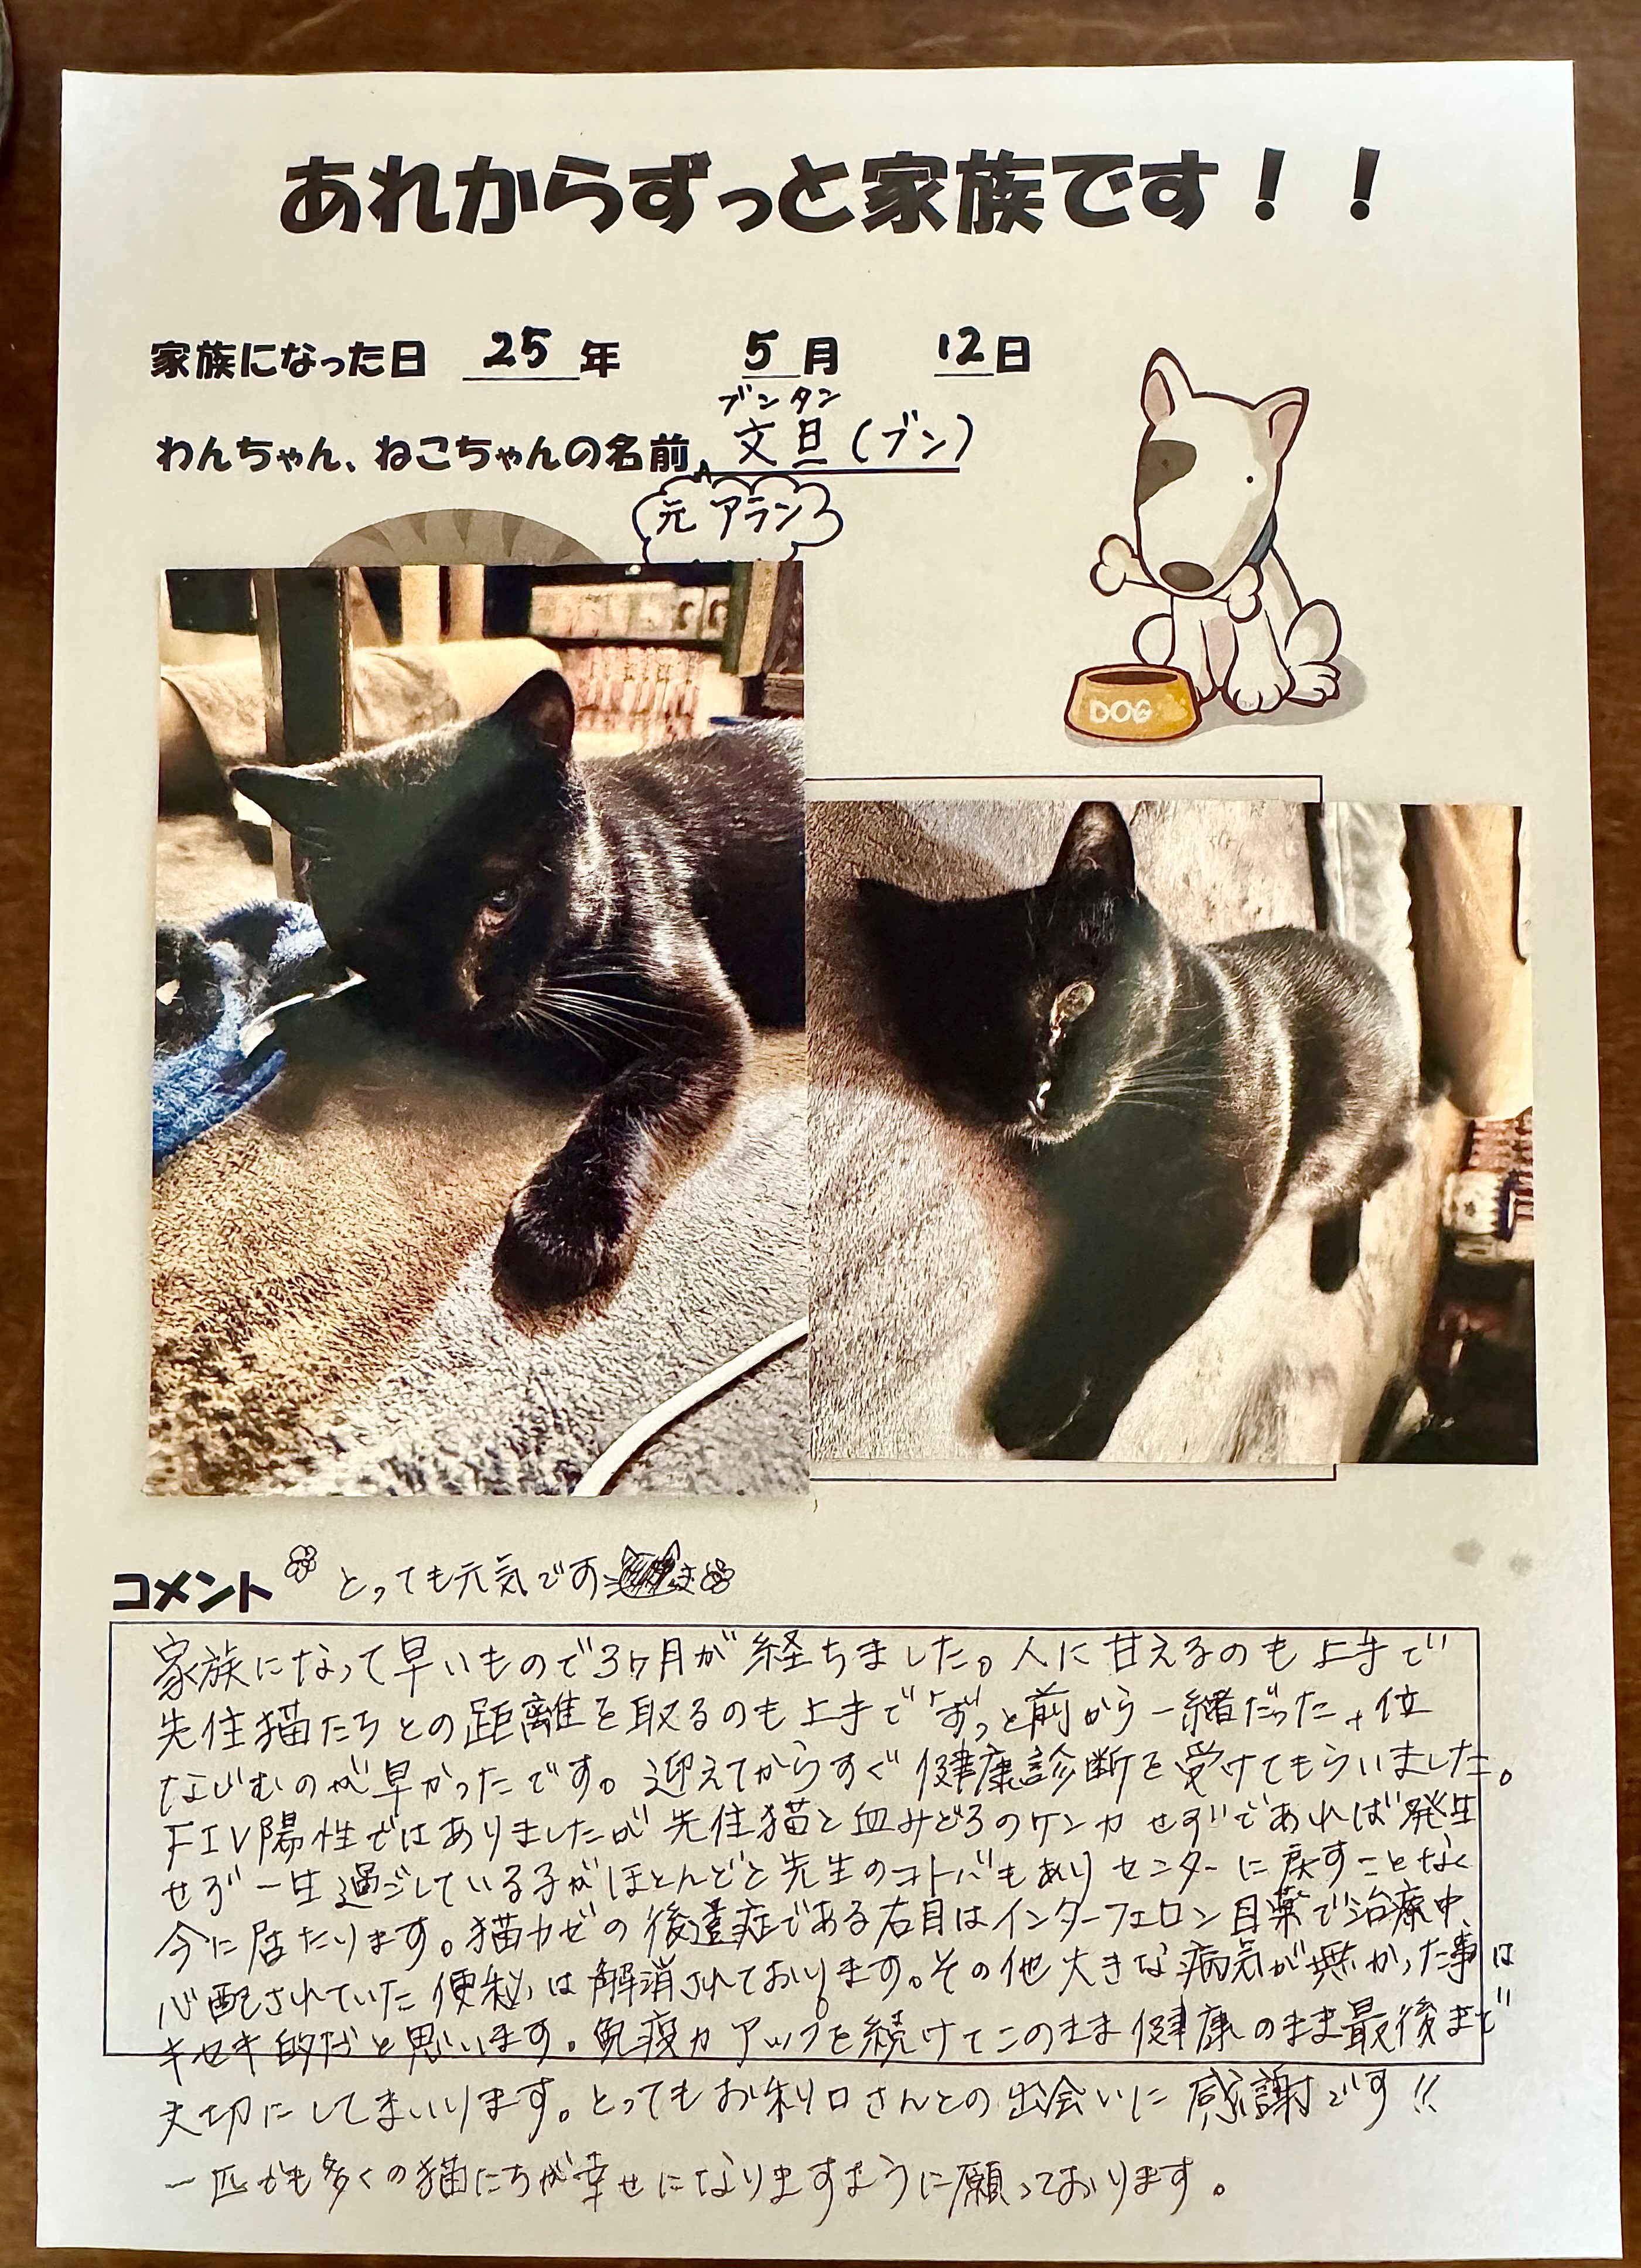 あれからずっと家族です！！
家族になった日 25年 5月 12日
ブンタン
わんちゃん、ねこちゃんの名前 文旦(ブン)
元アラン
DOG
コメント とっても元気です
家族になって早いもので3ヶ月が経ちました。人に甘えるのも上手で
先住猫たちとの距離を取るのも上手で"ずっと前から一緒だった"位
なじむのが早かったです。迎えてからすぐ健康診断を受けてもらいました。
FIV陽性ではありましたが先住猫と血みどろのケンカせずであれば発生
せず一生過ごしている子がほとんどと先生のコトバもありセンターに戻すことなく
今に居たります。猫カゼの後遺症である右目はインターフェロン目薬で治療中、
心配されていた便秘は解消されております。その他大きな病気が無かった事は
キセキ的だと思います。免疫力アップを続けてこのまま健康のまま最後まで
大切にしてまいります。とってもお利口さんとの出会いに感謝です!!
一匹でも多くの猫たちが幸せになりますように願っております。